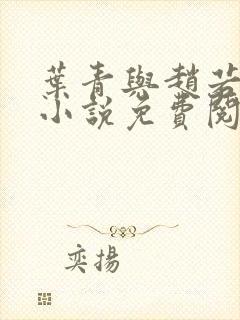 葉青與趙若
小說免費閱
奕揚